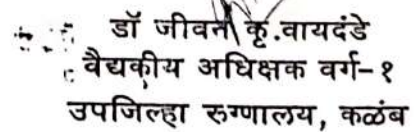 डॉ जीवन कृ.वायदंडे
वैद्यकीय अधिक्षक वर्ग-१
उपजिल्हा रुग्णालय, कळंब